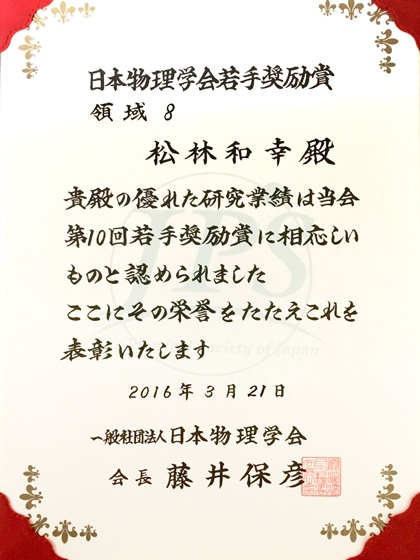 日本物理学会若手奨励賞
領域 8
松林和幸殿
貴殿の優れた研究業績は当会
第10回若手奨励賞に相応しい
ものと認められました
ここにその栄誉をたたえこれを
表彰いたします
JPS
Physical Society of Japan
2016年3月21日
一般社団法人日本物理学会
会長 藤井保彦